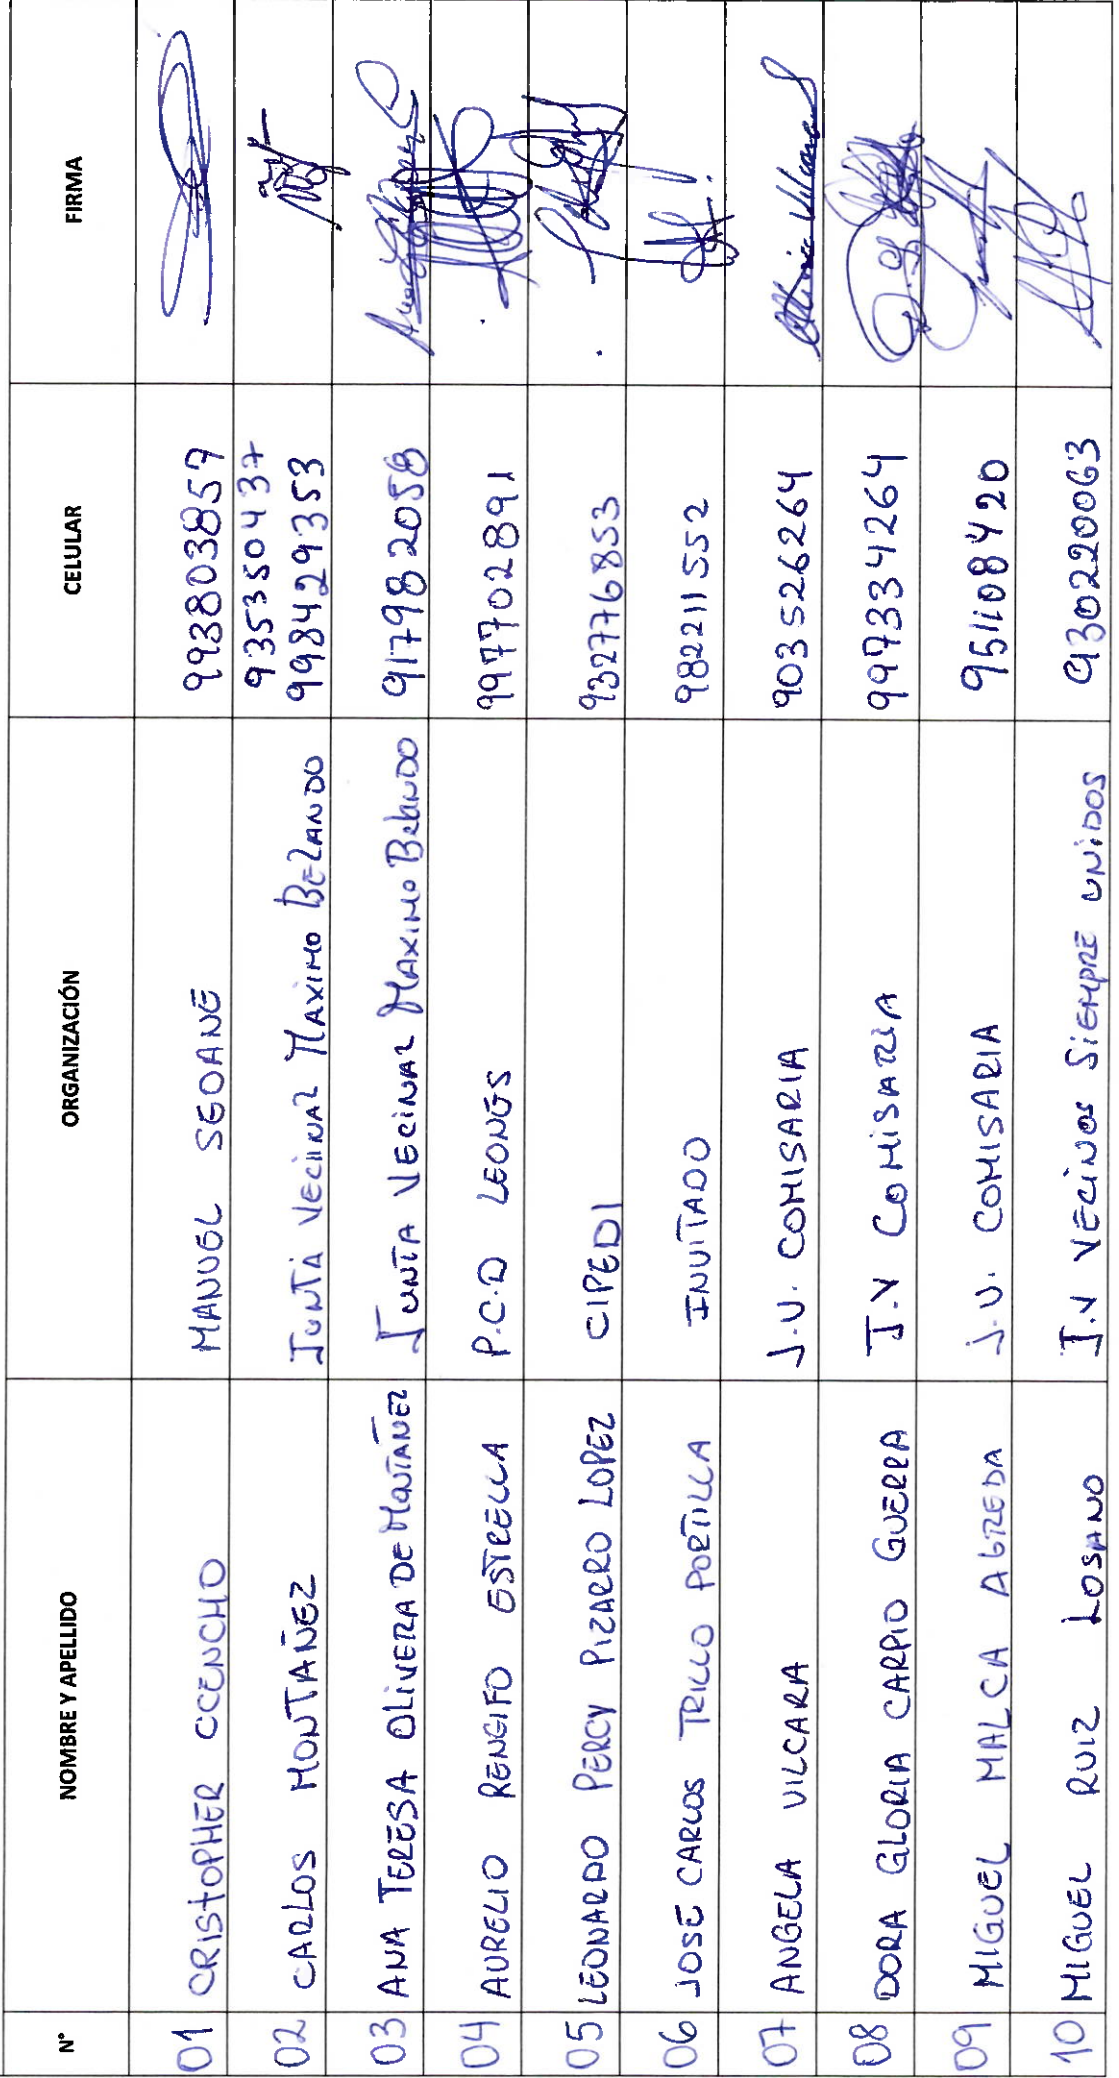 N° NOMBRE Y APELLIDO ORGANIZACIÓN CELULAR FIRMA
01 CRISTOPHER CCENCHO MANUEL SEOANE 993803859
935350437
02 CARLOS MONTAÑEZ JUNTA VECINAL MAXIMO BELANDO 998429353
03 ANA TERESA OLIVERA DE MONTAÑEZ JUNTA VECINAL MAXIMO BELANDO 917982058
04 AURELIO RENGIFO ESTRELLA P.C.D LEONES 997702891
05 LEONARDO PERCY PIZARRO LOPEZ CIPEDI 932776853
06 JOSE CARLOS TRILLO PORTILLA INVITADO 982211552
07 ANGELA VILCARA J.V. COMISARIA 903526264
08 DORA GLORIA CARPIO GUERRA J.V COMISARIA 997334264
09 MIGUEL MALCA AGREDA J.V. COMISARIA 951108420
10 MIGUEL RUIZ LOSANO J.V VECINOS SIEMPRE UNIDOS 930220063